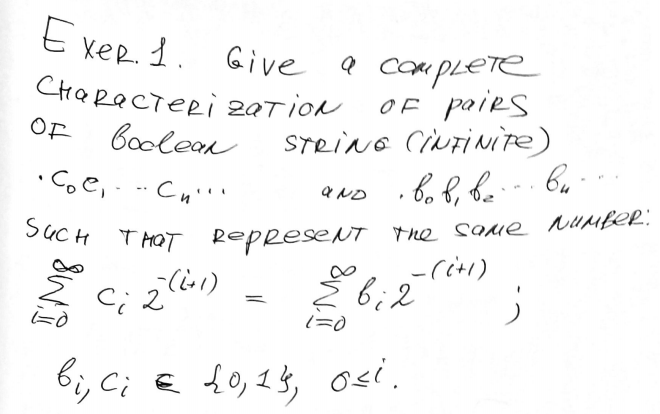 Exer. 1. Give a complete
characterization of pairs
of boolean string (infinite)
.c₀c₁...cₙ... and .b₀b₁b₂...bₙ...
such that represent the same number:
∞ ∑ i=0 cᵢ 2^-(i+1) = ∞ ∑ i=0 bᵢ 2^-(i+1) ;
bᵢ, cᵢ ∈ {0,1}, 0≤i.